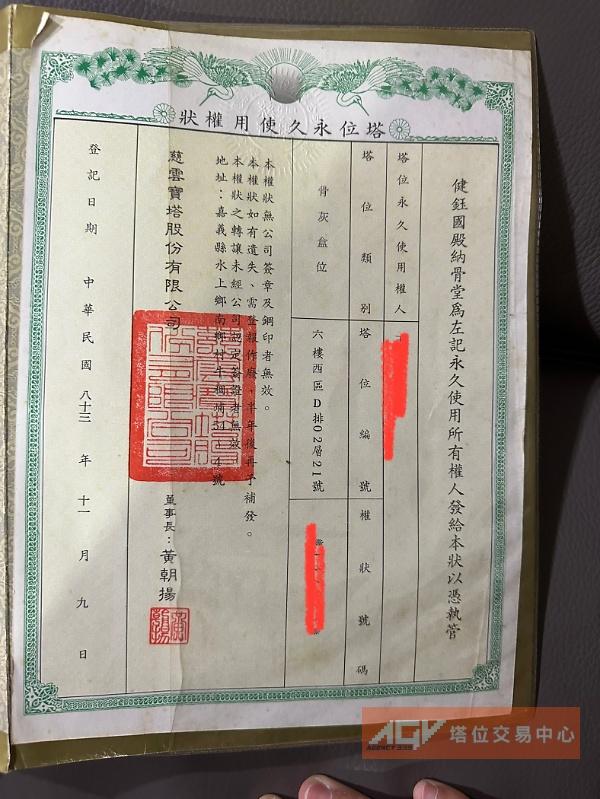 塔位永久使用權狀
健鈺國殿納骨堂為左記永久使用所有權人發給本狀以憑執管
塔位永久使用權人
塔位類別
塔位編號
權狀號碼
骨灰盒位
六樓西區D排02層21號
本權狀無公司簽章及鋼印者無效。
本權狀如有遺失、需登報作廢、半年後再予補發。
本權狀之轉讓未經公司認定簽證者無效。
地址：嘉義縣水上鄉南鄉村牛稠埔54
4號
慈雲寶塔股份有限公司
董事長：黃朝揚
登記日期 中華民國八十三年十一月九日
AGV
AGENCY
塔位交易中心